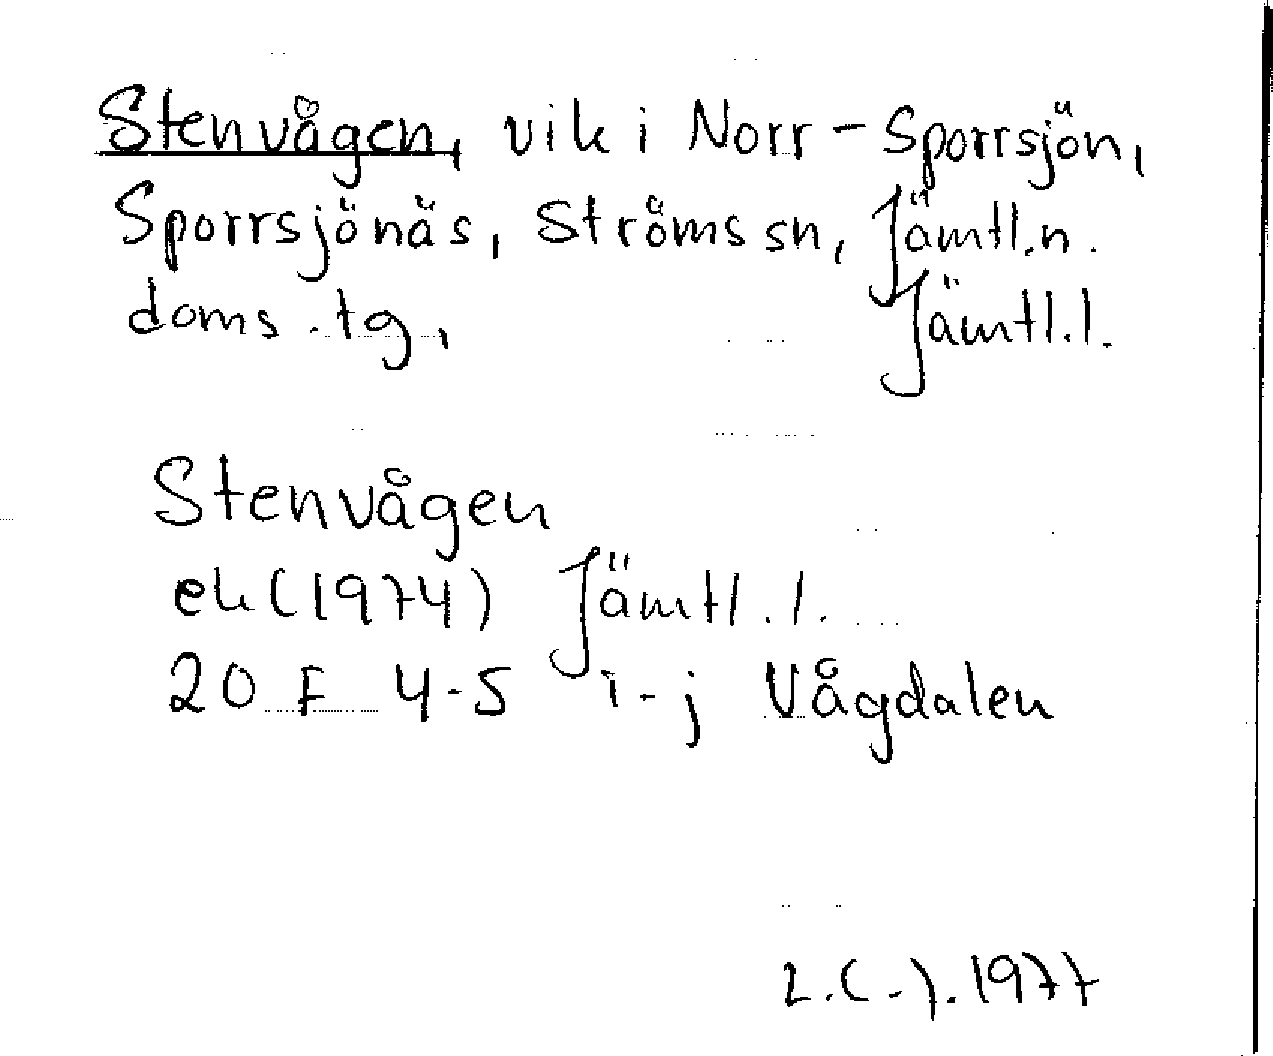 Stenvågen, vik i Norr-Sporrsjön,
Sporrsjönäs, Ströms sn, Jämtl.n.
doms.tg, Jämtl.l.
Stenvågen
ek (1974) Jämtl.l.
20 F 4-5 i-j Vågdalen
1977